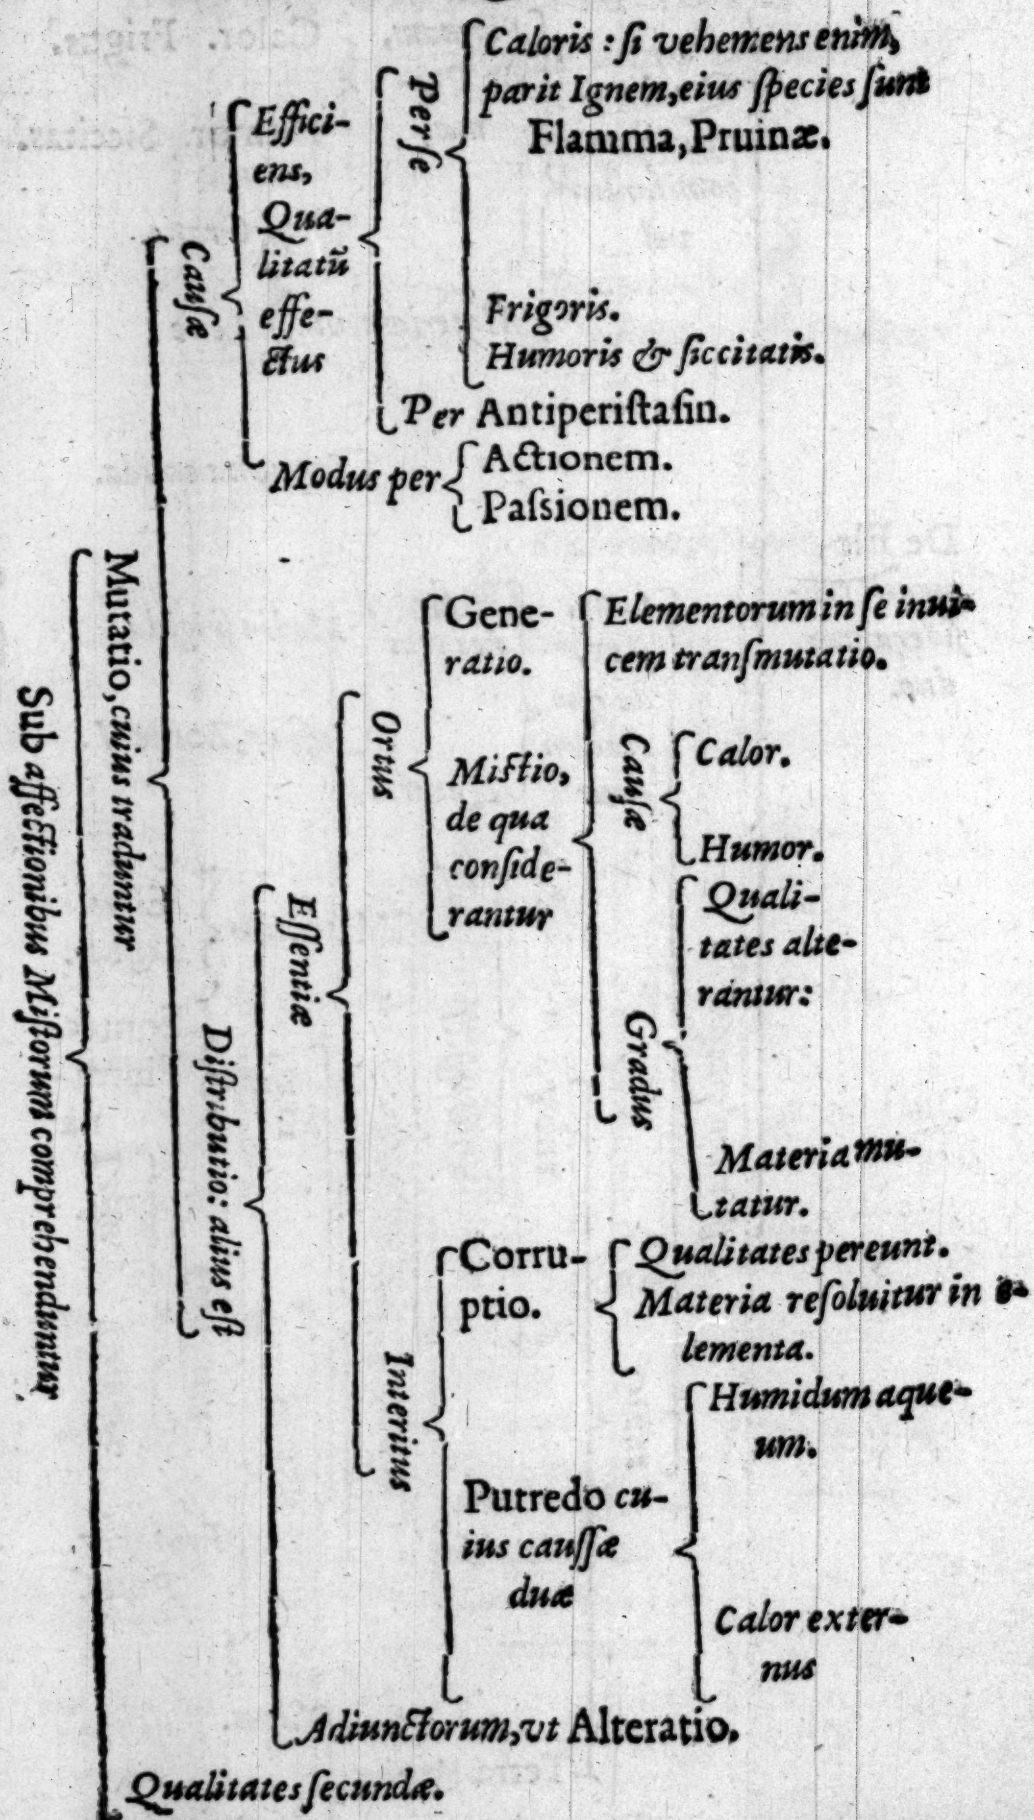 Sub affectionibus Miſtorum comprehenduntur
Mutatio, cuius traduntur
Cauſæ
Effici-
ens,
Qua-
litatũ
effe-
ctus
Per ſe
Caloris : ſi vehemens enim,
parit Ignem, eius ſpecies ſunt
Flamma, Pruinæ.
Frigoris.
Humoris & ſiccitatis.
Per Antiperiſtaſin.
Modus per
Actionem.
Paſsionem.
Diſtributio: alius eſt
Eſſentiæ
Ortus
Gene-
ratio.
Miſtio,
de qua
conſide-
rantur
Elementorum in ſe inui-
cem tranſmutatio.
Cauſæ
Calor.
Humor.
Gradus
Quali-
tates alte-
rantur:
Materia mu-
tatur.
Interitus
Corru-
ptio.
Qualitates pereunt.
Materia reſoluitur in e-
lementa.
Putredo cu-
ius cauſſæ
duæ
Humidum aque-
um.
Calor exter-
nus
Adiunctorum, vt Alteratio.
Qualitates ſecundæ.